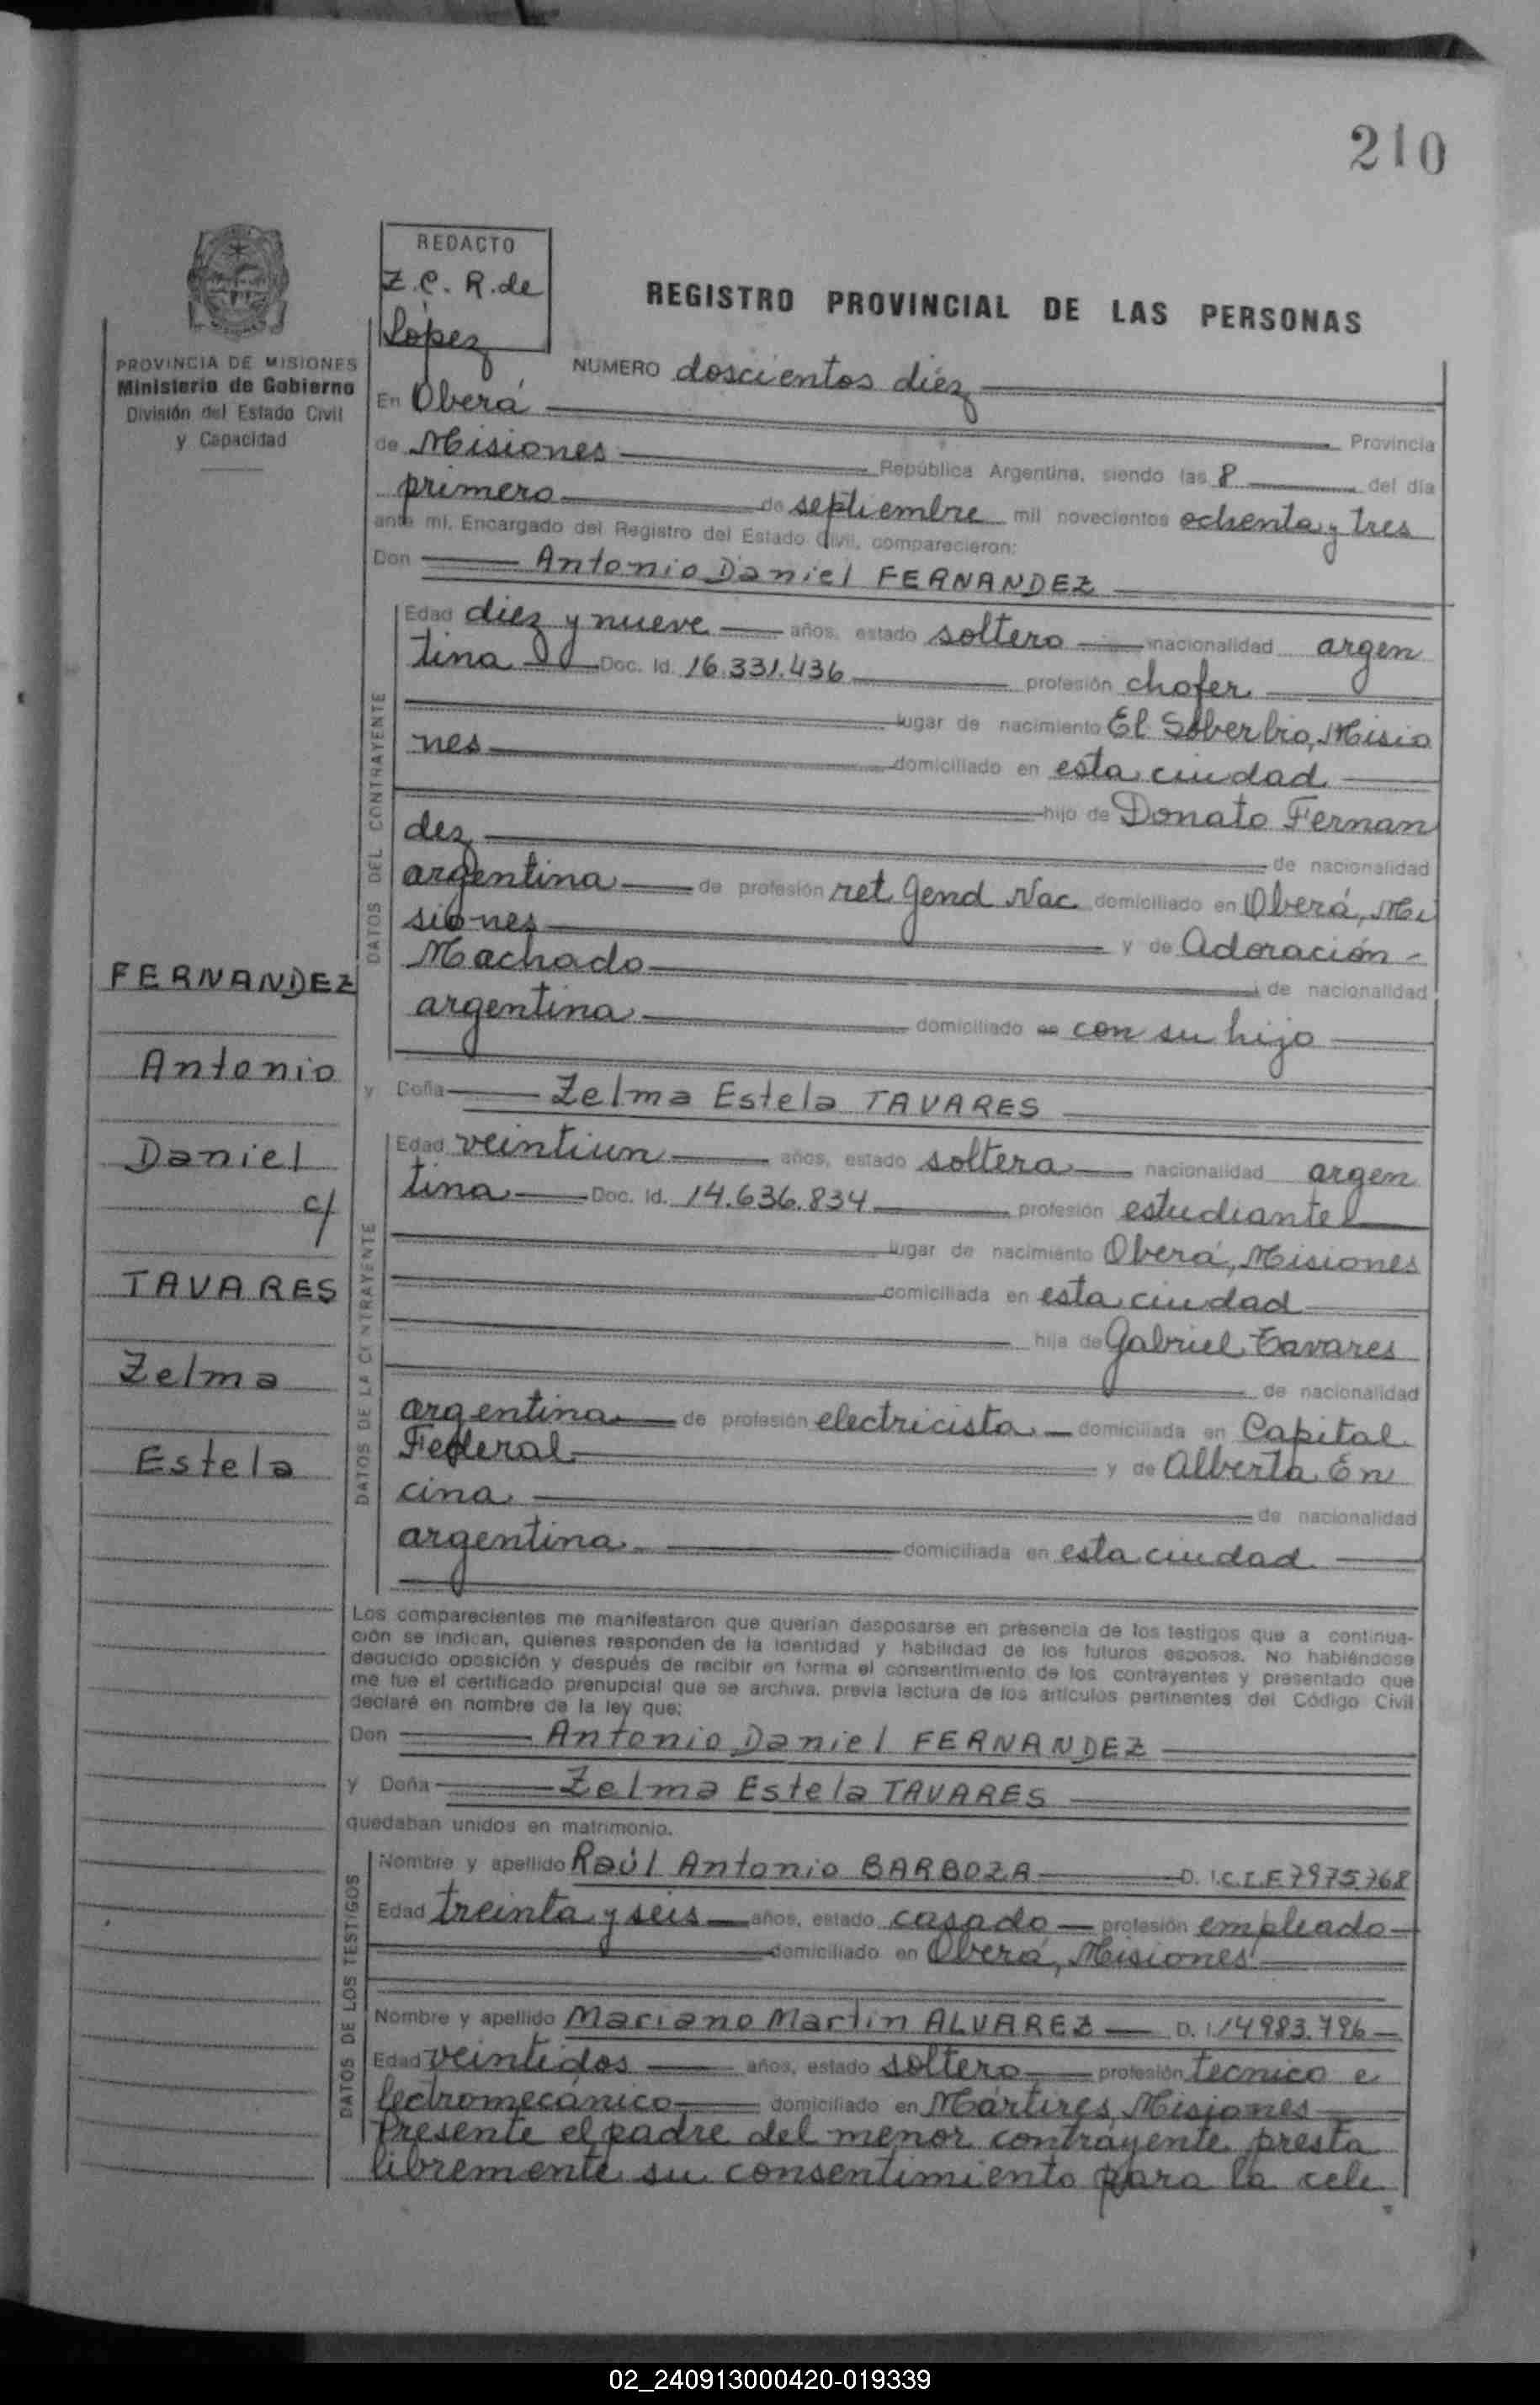 210
REDACTO
Z.C. R. de
López
REGISTRO PROVINCIAL DE LAS PERSONAS
PROVINCIA DE MISIONES
Ministerio de Gobierno
División del Estado Civil
y Capacidad
NUMERO doscientos diez
En Oberá Provincia
de Misiones República Argentina, siendo las 8 del día
primero de septiembre mil novecientos ochenta y tres
ante mí, Encargado del Registro del Estado Civil, comparecieron:
Don Antonio Daniel FERNANDEZ
DATOS DEL CONTRAYENTE
Edad diez y nueve años, estado soltero nacionalidad argen
tina Doc. Id. 16.331.436 profesión chofer
lugar de nacimiento El Soberbio, Misio
nes domiciliado en esta ciudad
hijo de Donato Fernan
dez de nacionalidad
argentina de profesión ret. Gend Nac. domiciliado en Oberá, Mi
siones y de Adoración -
Machado de nacionalidad
argentina domiciliado en con su hijo
FERNANDEZ
Antonio
Daniel
c/
TAVARES
Zelma
Estela
y Doña Zelma Estela TAVARES
DATOS DE LA CONTRAYENTE
Edad veintiun años, estado soltera nacionalidad argen
tina Doc. Id. 14.636.834 profesión estudiante
lugar de nacimiento Oberá, Misiones
domiciliada en esta ciudad
hija de Gabriel Tavares
de nacionalidad
argentina de profesión electricista domiciliada en Capital
Federal y de Alberta En
cina de nacionalidad
argentina domiciliada en esta ciudad
Los comparecientes me manifestaron que querían desposarse en presencia de los testigos que a continua-
ción se indican, quienes responden de la identidad y habilidad de los futuros esposos. No habiéndose
deducido oposición y después de recibir en forma el consentimiento de los contrayentes y presentado que
me fue el certificado prenupcial que se archiva, previa lectura de los artículos pertinentes del Código Civil
declaré en nombre de la ley que:
Don Antonio Daniel FERNANDEZ
y Doña Zelma Estela TAVARES
quedaban unidos en matrimonio.
DATOS DE LOS TESTIGOS
Nombre y apellido Raúl Antonio BARBOZA D. I.C.I.F. 7975.768
Edad treinta y seis años, estado casado profesión empleado
domiciliado en Oberá, Misiones
Nombre y apellido Mariano Martin ALVAREZ D. I. 14983.796
Edad veintidos años, estado soltero profesión tecnico e
lectromecánico domiciliado en Mártires, Misiones
Presente el padre del menor contrayente presta
libremente su consentimiento para la cele
02_240913000420-019339